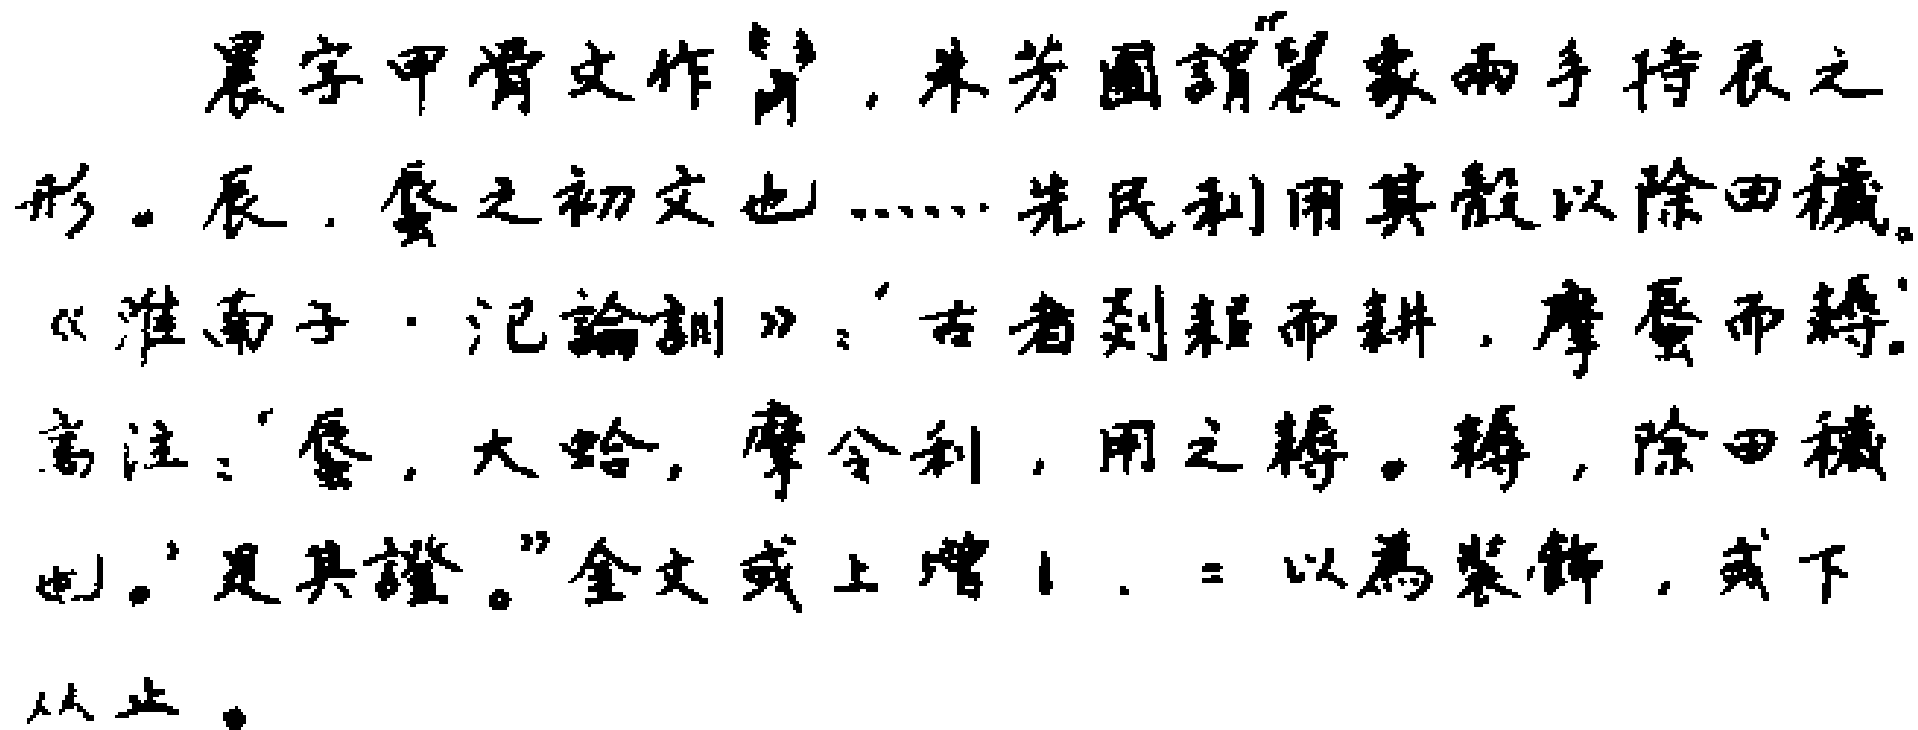 晨字甲骨文作，朱芳圃謂“晨象兩手持辰之
形。辰，蜃之初文也……先民利用其殻以除田穢。
《淮南子·氾論訓》：‘古者剡耜而耕，摩蜃而耨。’
高注：‘蜃，大蛤，摩令利，用之耨。耨，除田穢
也。’是其證。”金文或上增丨、=以為裝飾，或下
从止。